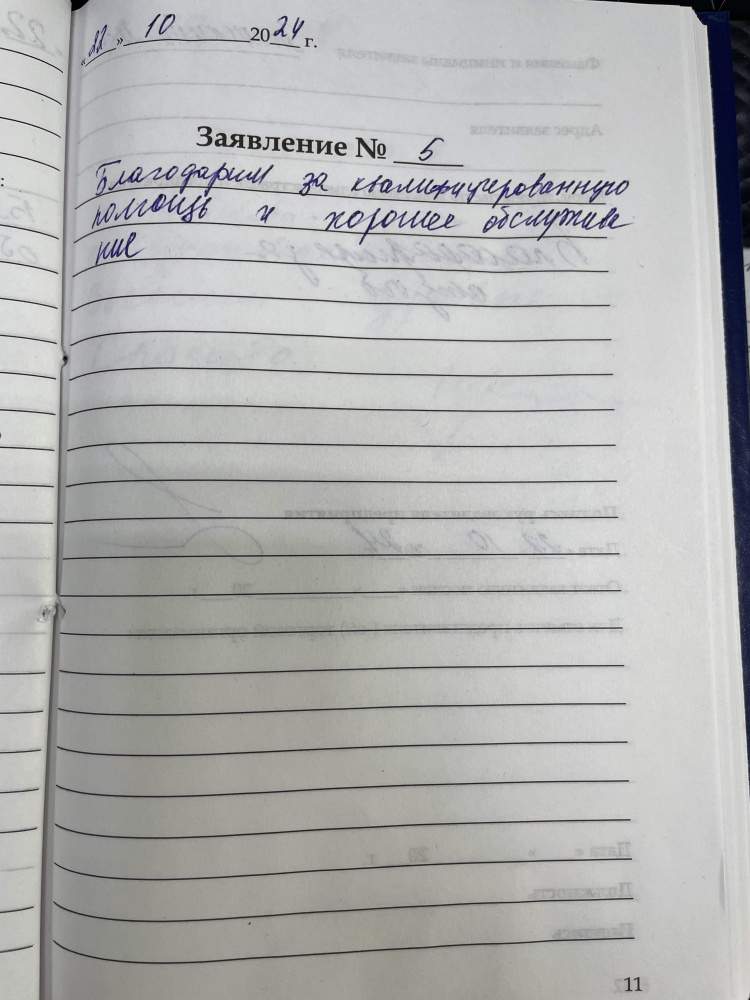 «22» 10 2024 г.
Заявление № 5
Благодарим за квалифицированную
помощь и хорошее обслужива
ние
11